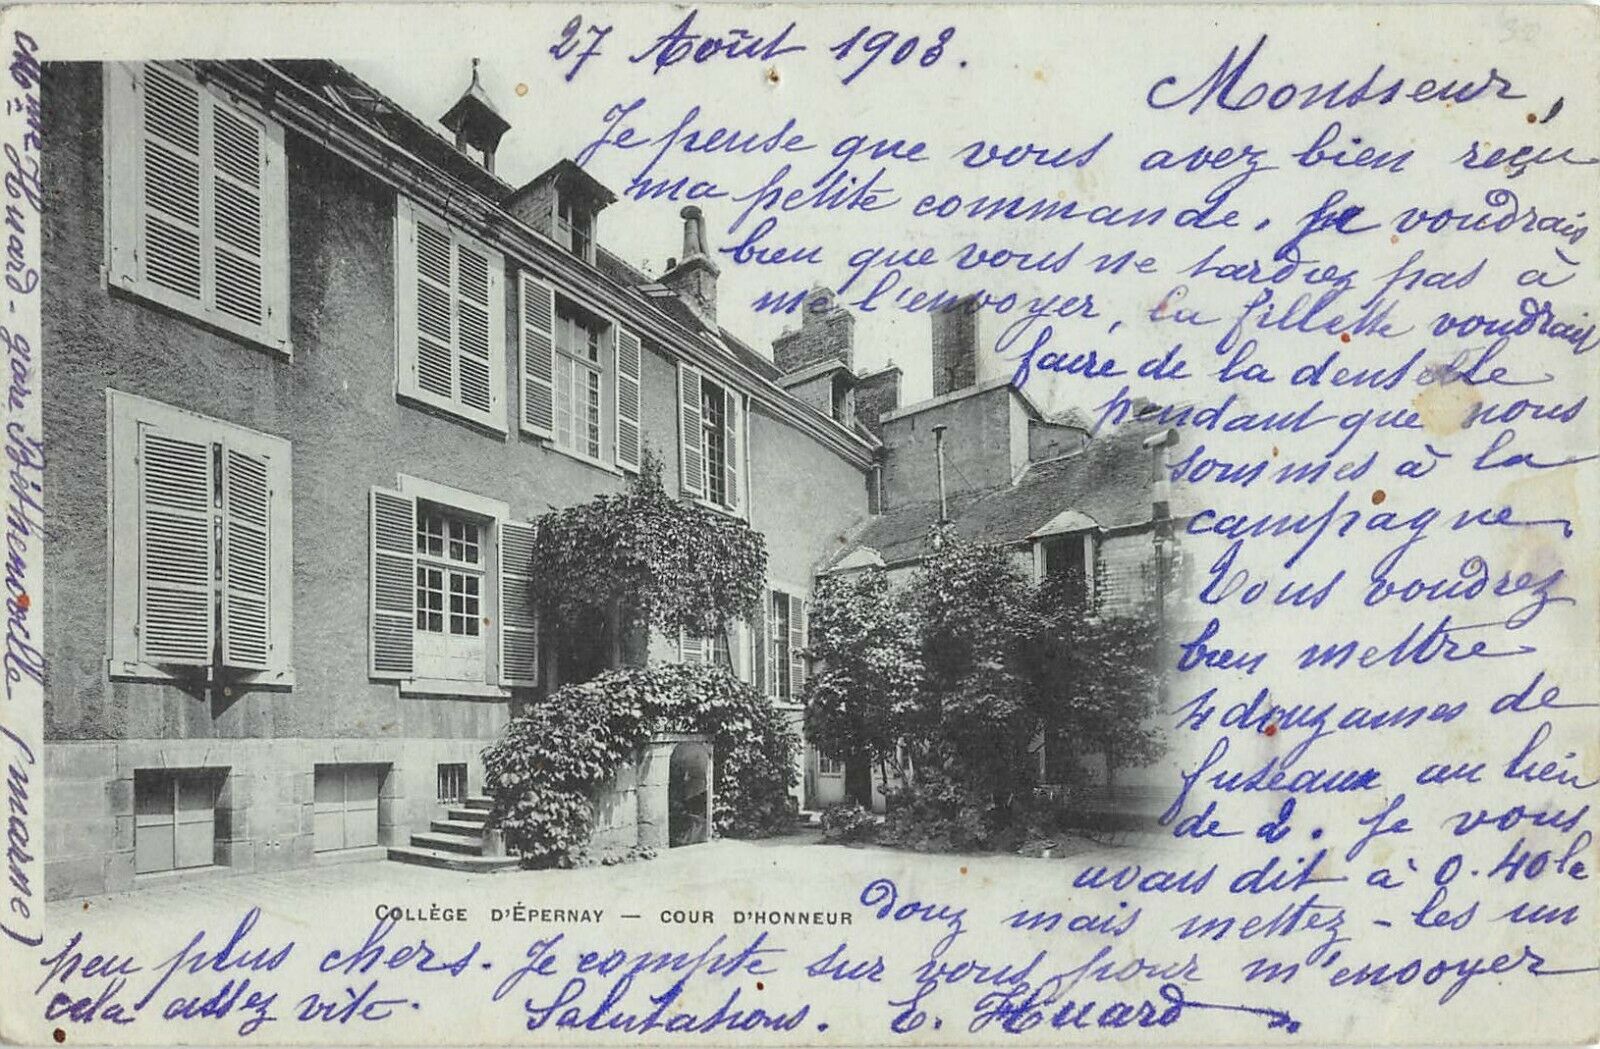 27 Août 1903.
Monsieur,
Je pense que vous avez bien reçu
ma petite commande. Je voudrais
bien que vous ne tardiez pas à
me l'envoyer, la fillette voudrait
faire de la dentelle
pendant que nous
sommes à la
campagne.
Vous voudrez
bien mettre
4 douzaines de
fuseaux au lieu
de 2. Je vous
avais dit à 0.40 la
COLLÈGE D'ÉPERNAY — COUR D'HONNEUR
douz mais mettez-les un
peu plus chers. Je compte sur vous pour m'envoyer
cela assez vite. Salutations. E. Huard
Mme Huard - gare Béthenville (marne)